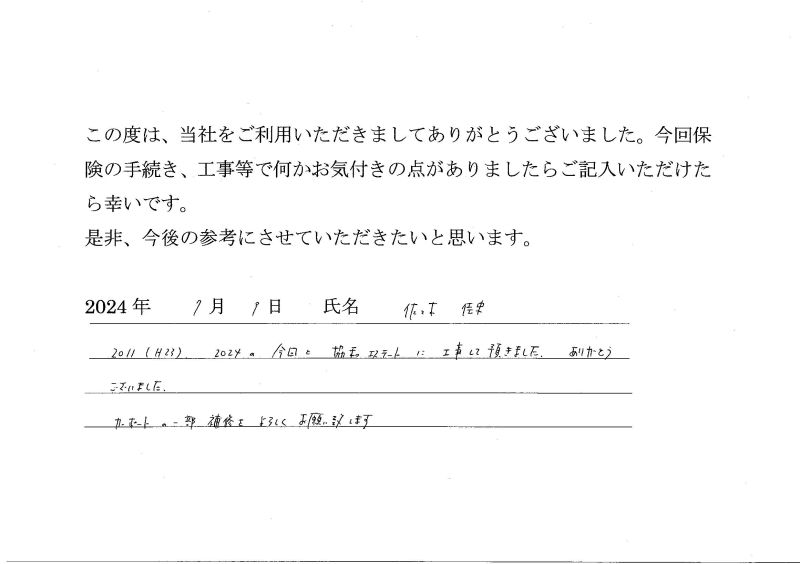 この度は、当社をご利用いただきましてありがとうございました。今回保
険の手続き、工事等で何かお気付きの点がありましたらご記入いただけた
ら幸いです。
是非、今後の参考にさせていただきたいと思います。
2024年 9月 9日 氏名 佐々木
2011 (H23). 2024の 今回と 協和エステートに 工事して頂きました. ありがとう
ございました.
カーポートの一部 補修を よろしく お願い致します